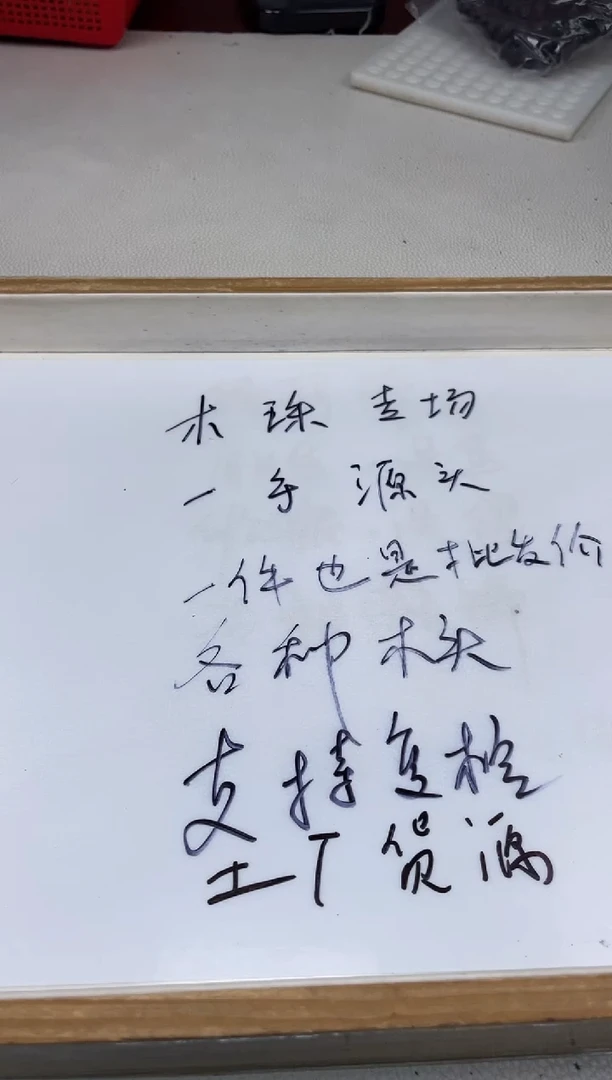 木珠专场
一手源头
一件也是批发价
各种木头
支持复检
工厂货源